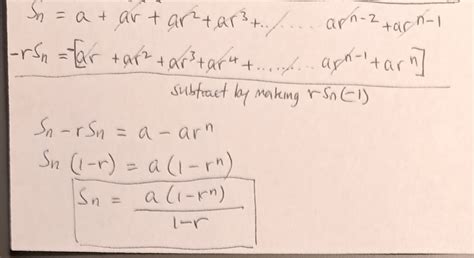 Sn = a + ar + ar² + ar³ + ../..... arⁿ⁻² + arⁿ⁻¹
-rSn = -[ar + ar² + ar³ + ar⁴ + ...../..... arⁿ⁻¹ + arⁿ]
subtract by making rSn(-1)
Sn - rSn = a - arⁿ
Sn (1-r) = a (1-rⁿ)
Sn = a (1-rⁿ) / 1-r